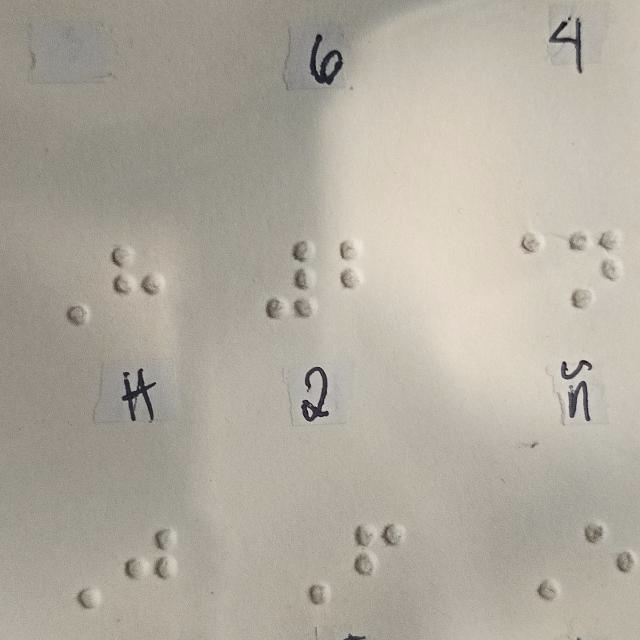 6 4
⠠⠓ ⠼⠃ ⠈⠝
H 2 ñ
⠠⠚ ⠠⠋ ⠠⠑